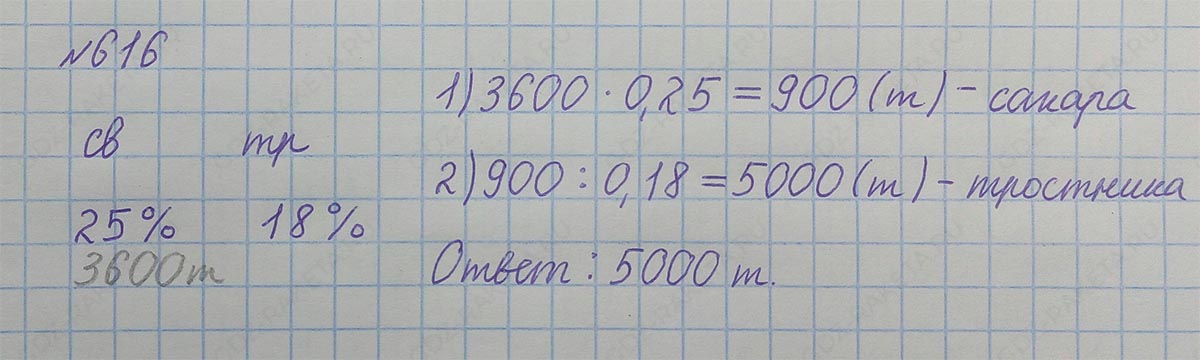 №616
св тр
25% 18%
3600т
1) 3600 · 0,25 = 900 (т) – сахара
2) 900 : 0,18 = 5000 (т) – тростника
Ответ: 5000 т.